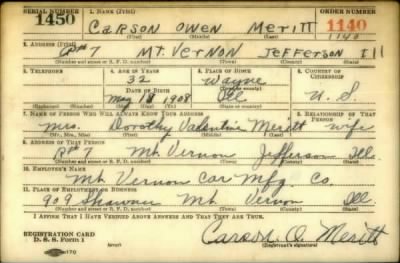 SERIAL NUMBER 1. NAME (Print) ORDER NUMBER
1450 CARSON OWEN MERITT 1140
1140
(First) (Middle) (Last)
2. ADDRESS (Print)
7 MT. VERNON JEFFERSON Ill
(Number and street or R. F. D. number) (Town) (County) (State)
3. TELEPHONE 4. AGE IN YEARS 5. PLACE OF BIRTH 6. COUNTRY OF CITIZENSHIP
32 Wayne
DATE OF BIRTH (Town or county)
May 18 1908 Ill U. S.
(Exchange) (Number) (Mo.) (Day) (Yr.) (State or country)
7. NAME OF PERSON WHO WILL ALWAYS KNOW YOUR ADDRESS 8. RELATIONSHIP OF THAT PERSON
Mrs. Dorothy Valentine Meritt wife
(Mr., Mrs., Miss) (First) (Middle) (Last)
9. ADDRESS OF THAT PERSON
R#7 Mt. Vernon Jefferson Ill.
(Number and street or R. F. D. number) (Town) (County) (State)
10. EMPLOYER'S NAME
Mt. Vernon Car Mfg. Co.
11. PLACE OF EMPLOYMENT OR BUSINESS
909 Mt. Vernon Ill.
(Number and street or R. F. D. number) (Town) (County) (State)
I AFFIRM THAT I HAVE VERIFIED ABOVE ANSWERS AND THAT THEY ARE TRUE.
REGISTRATION CARD
D. S. S. Form 1 (over) Carson O. Meritt
(Registrant's signature)